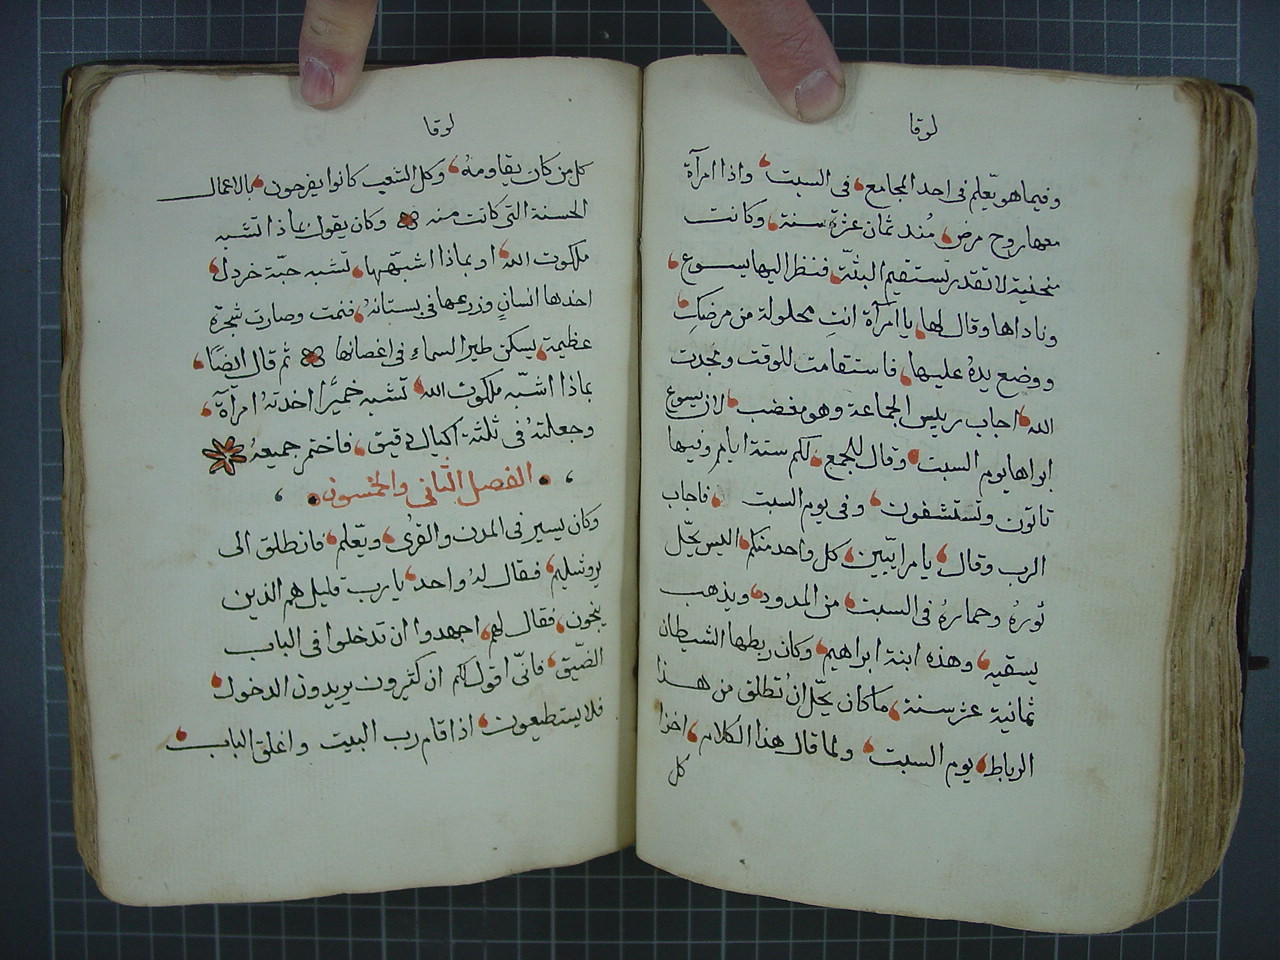 لوقا
وفيما هو يعلم فى احد المجامع فى السبت واذا امرآة
معها روح مرض مُند ثمان عشرة سنة وكانت
منحنية لا تقدر تستقيم البتّة فنظر اليها يسوع
وناداها وقال لها يا امرآة انتِ محلولة من مرضكِ
ووضع يدهُ عليها فاستقامت للوقت ومجدت
الله اجاب رييس الجماعة وهو مغضب لان يسوع
ابراها يوم السبت وقال للجمع لكم ستة ايام وفيها
تاتون وتستشفون وفى يوم السبت فاجاب
الرب وقال يا مراييّن كل واحد منكم اليس يحّل
ثورهُ وحمارهُ فى السبت من المدود ويذهب
يسقيه وهذه ابنة ابراهيم وكان ربطها الشيطان
ثمانية عشر سنة ما كان يحّل ان تطلق من هذا
الرباط يوم السبت ولما قال هذا الكلام اخزا
كل
لوقا
كل من كان يقاومهُ وكل الشعب كانوا يفرحون بالاعمال
الحسنة التى كانت منه وكان يقول بماذا تشبه
ملكوت الله او بماذا اشبّهها تشبه حبّة خردل
اخدها انسان وزرعها فى بستانهُ فنمت وصارت شجرة
عظيمة يسكن طير السماءِ فى اغصانها ثم قال ايضًا
بماذا اشبّه ملكوت الله تشبه خميًرا اخدتهُ امرآة
وجعلتهُ فى ثلثة اكيال دقيق فاختمر جميعهُ
الفصل الثانى والخمسون
وكان يسير فى المدن والقرى ويعّلم فانطلق الى
يروشليم فقال لهُ واحد يا رب قليل هم الذين
ينجون فقال لهم اجهدوا ان تدخلوا فى الباب
الضّيق فانّى اقول لكم ان كثيرون يريدون الدخول
فلا يستطيعون اذا قام رب البيت واغلق الباب